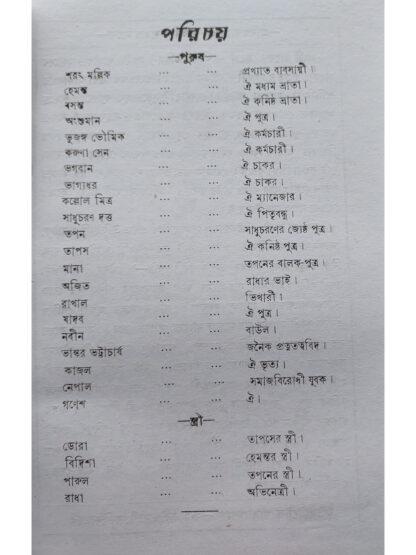 পরিচয়
—পুরুষ—
শরৎ মল্লিক ... ... প্রখ্যাত ব্যবসায়ী।
হেমন্ত ... ... ঐ মধ্যম ভ্রাতা।
বসন্ত ... ... ঐ কনিষ্ঠ ভ্রাতা।
অংশুমান ... ... ঐ পুত্র।
ভুজঙ্গ ভৌমিক ... ... ঐ কর্মচারী।
করুণা সেন ... ... ঐ কর্মচারী।
ভগবান ... ... ঐ চাকর।
ভাগ্যধর ... ... ঐ চাকর।
কল্লোল মিত্র ... ... ঐ ম্যানেজার।
সাধুচরণ দত্ত ... ... ঐ পিতৃবন্ধু।
তপন ... ... সাধুচরণের জ্যেষ্ঠ পুত্র।
তাপস ... ... ঐ কনিষ্ঠ পুত্র।
মানা ... ... তপনের বালক-পুত্র।
অজিত ... ... রাধার ভাই।
রাখাল ... ... ভিখারী।
যাদব ... ... ঐ পুত্র।
নবীন ... ... বাউল।
ভাস্কর ভট্টাচার্য ... ... জনৈক প্রত্নতত্ত্ববিদ।
কাজল ... ... ঐ ভৃত্য।
নেপাল ... ... সমাজবিরোধী যুবক।
গণেশ ... ... ঐ।
—স্ত্রী—
ডোরা ... ... তাপসের স্ত্রী।
বিদিশা ... ... হেমন্তর স্ত্রী।
পারুল ... ... তপনের স্ত্রী।
রাধা ... ... অভিনেত্রী।